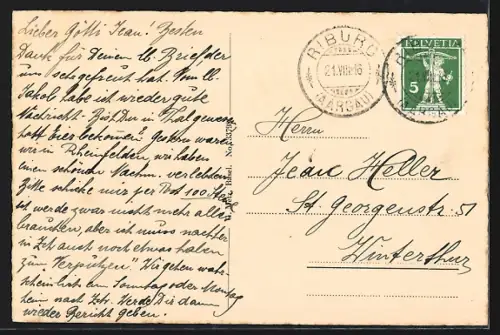 Lieber Götti Jean! Besten
Dank für Deinen lb. Brief der
uns sehr gefreut hat. Vom lb.
Jakob habe ich wieder gute
Nachricht. Bist Du in Thal gewesen
hast Eier bekommen? Gestern waren
wir in Rheinfelden, wir haben
einen schönen Nachm. verlebt.
Bitte schicke mir per Post 100.
ich werde zwar nicht mehr alles
brauchen, aber ich muss nachher
in Zch auch noch etwas haben
zum "Verputzen". Wir gehen wahr-
scheinlich am Sonntag oder Montag
heim nach Zch. Werde Dir dann
wieder Bericht geben.
RIBURG
21.VII.16
(AARGAU)
HELVETIA
5
Herrn
Jean Heller
St. Georgenstr. 51
Winterthur